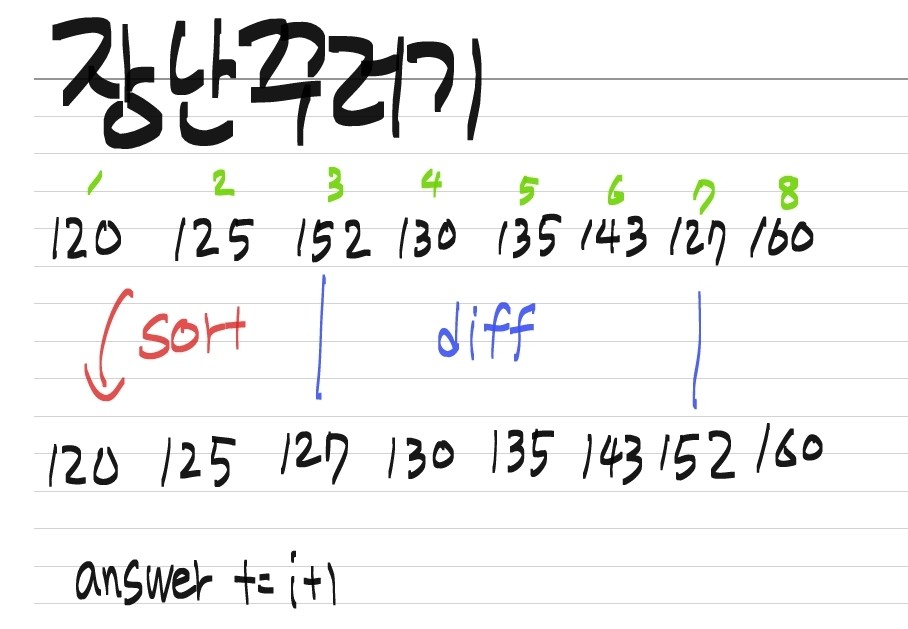 장난꾸러기
1 2 3 4 5 6 7 8
120 125 152 130 135 143 127 160
sort diff
120 125 127 130 135 143 152 160
answer += i+1